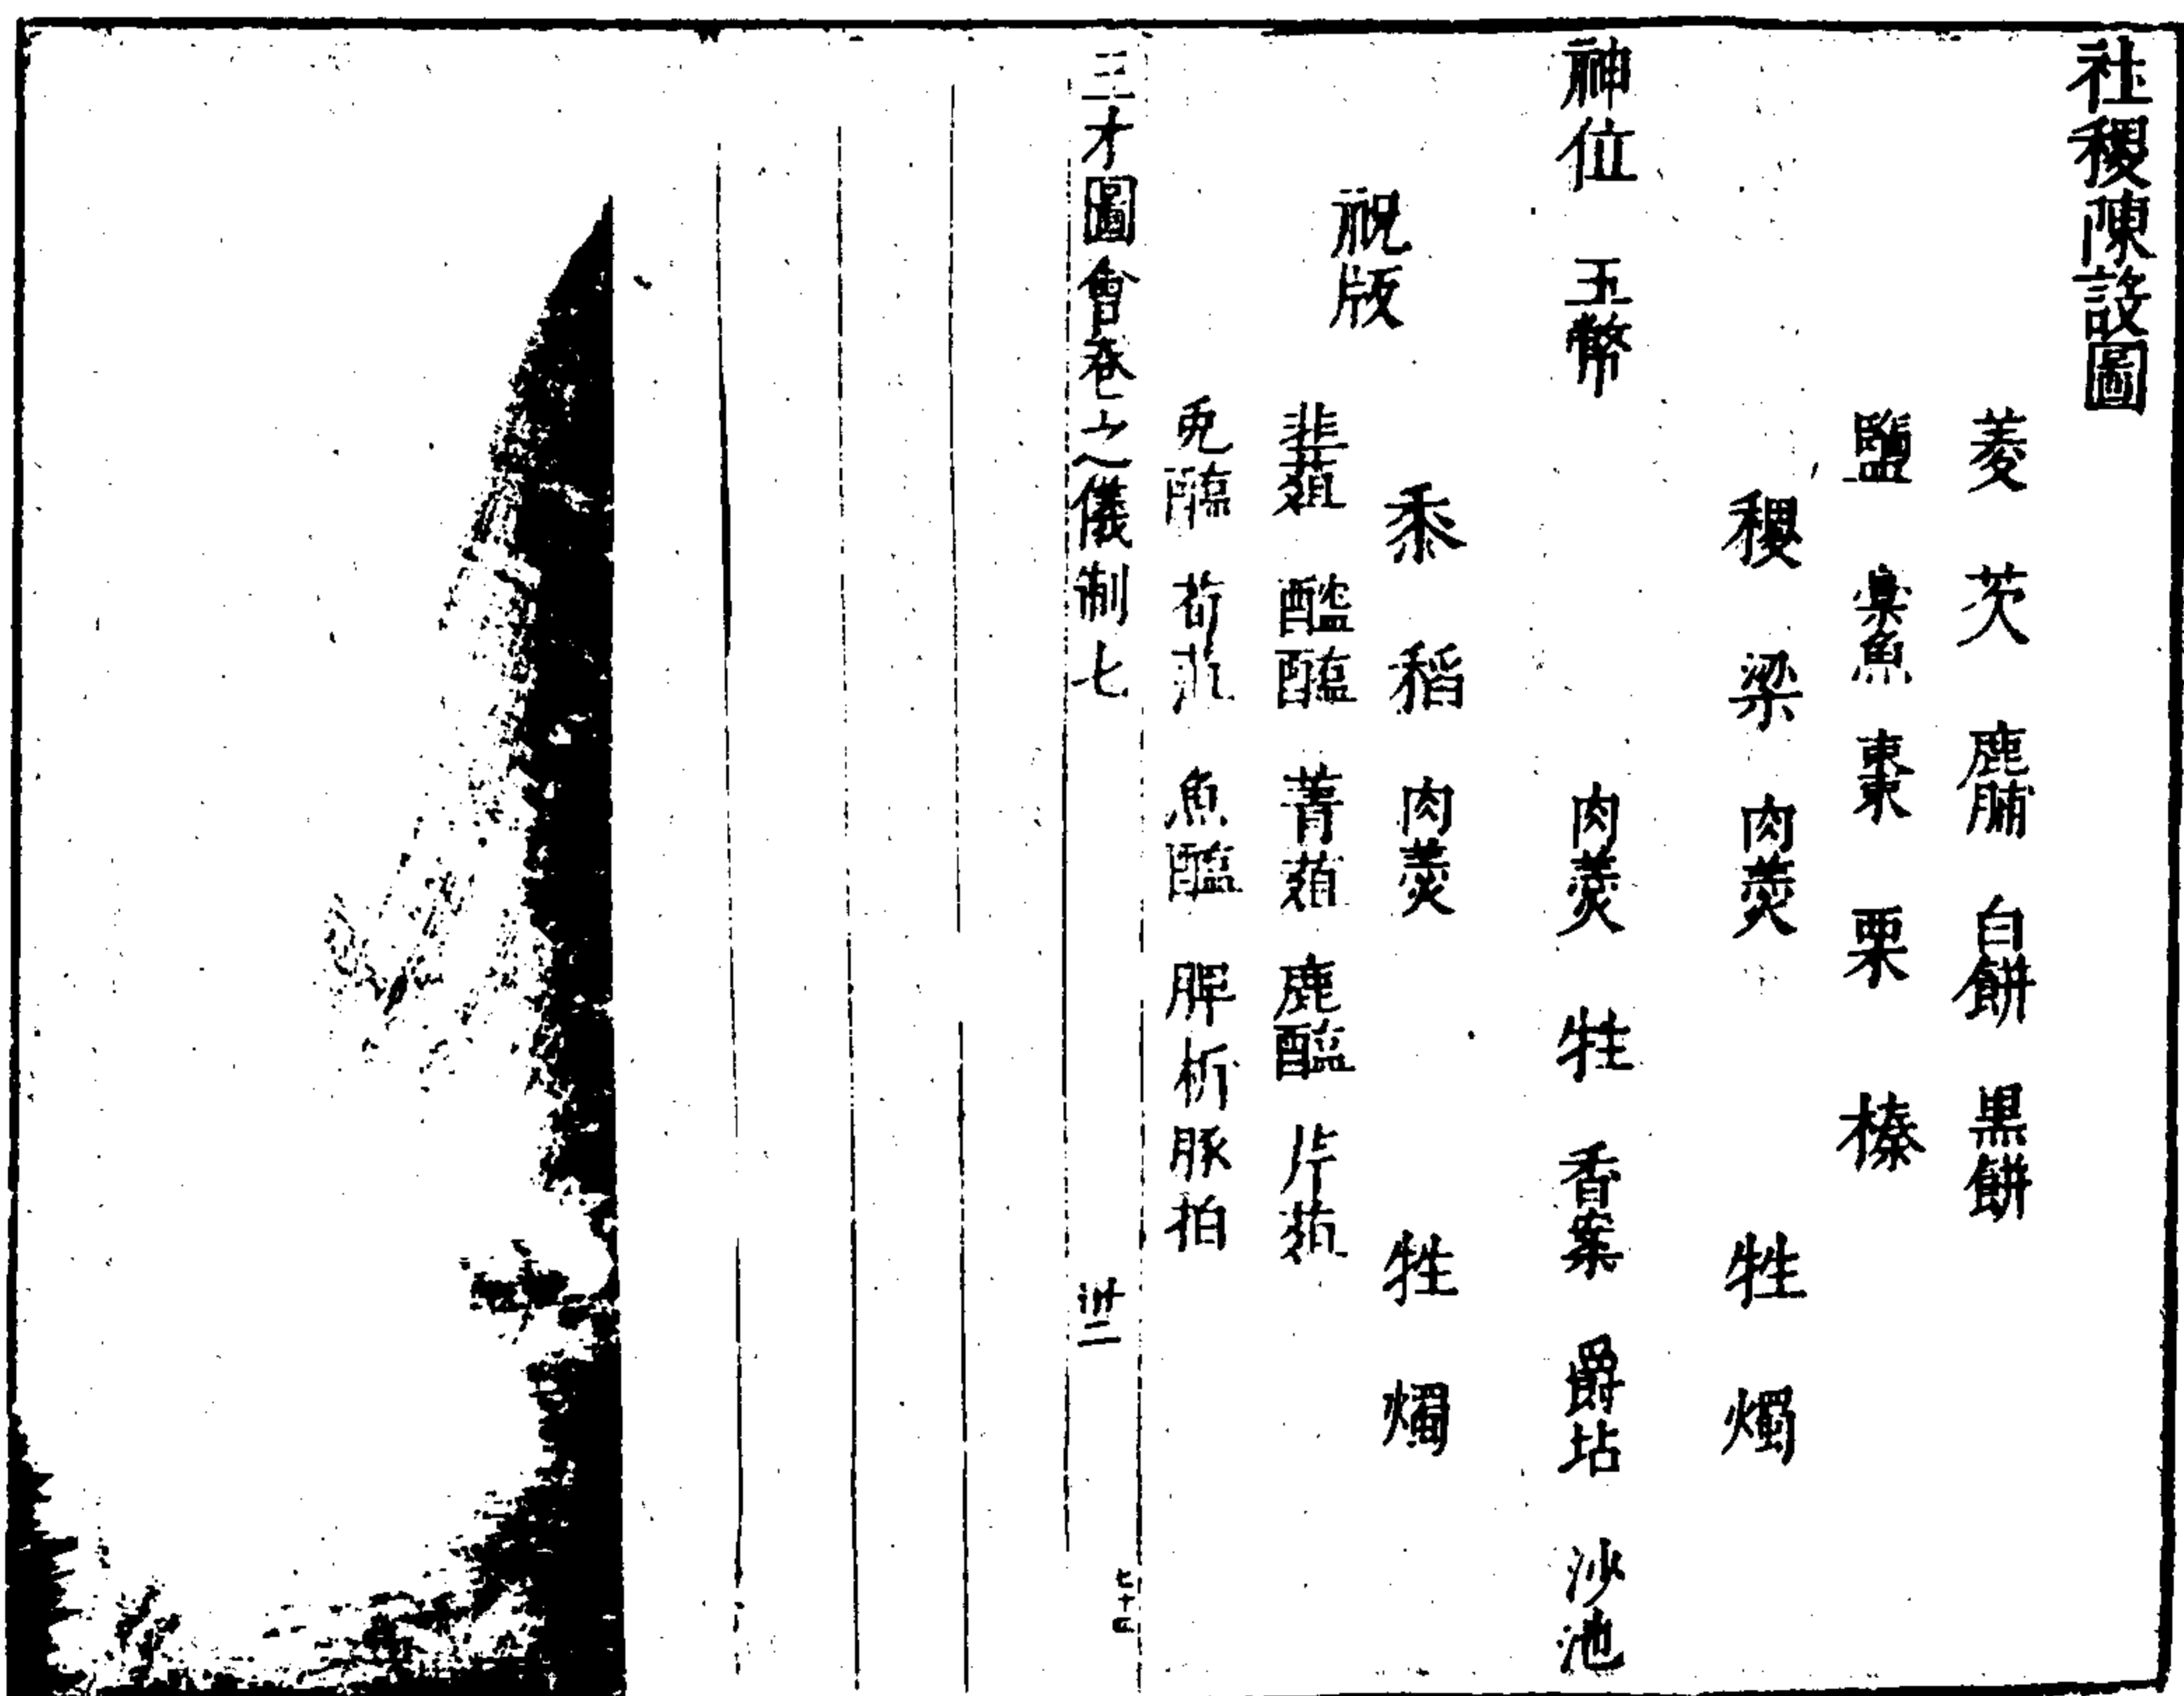 社稷陳設圖
菱 茨 鹿脯 白餅 黒餅
鹽 槀魚 棗 栗 榛
稷 粱 肉羹 牲 燭
神位 玉幣 肉羹 牲 香案 爵坫 沙池
祝版
黍 稻 肉羹 牲 燭
韭菹 醓醢 菁菹 鹿醢 芹菹
兎醢 荀菹 魚醢 脾析 豚拍
三才圖會 卷之 儀制七 卅二